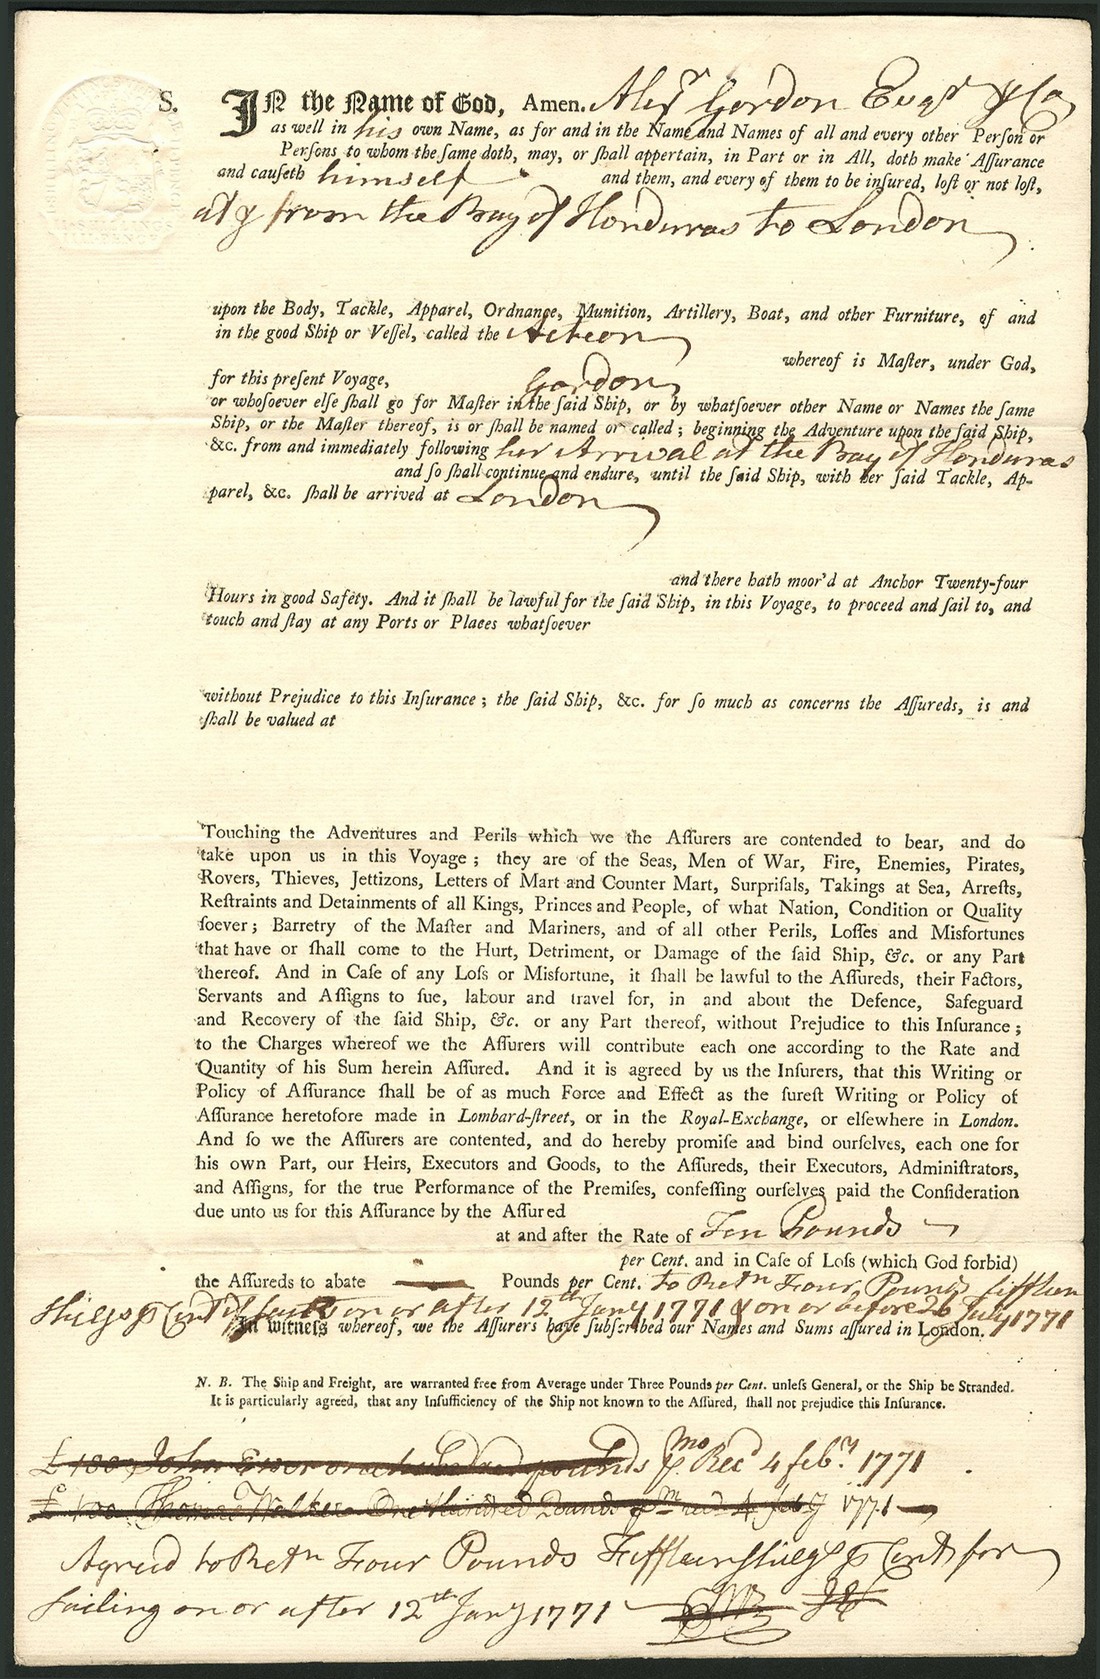 S. IN the Name of God, Amen. Alexr Gordon Esqr & Co
as well in his own Name, as for and in the Name and Names of all and every other Perſon or
Perſons to whom the ſame doth, may, or ſhall appertain, in Part or in All, doth make Aſſurance
and cauſeth himself and them, and every of them to be inſured, loſt or not loſt,
at & from the Bay of Honduras to London
upon the Body, Tackle, Apparel, Ordnance, Munition, Artillery, Boat, and other Furniture, of and
in the good Ship or Veſſel, called the Acteon
whereof is Maſter, under God,
for this preſent Voyage, Gordon
or whoſoever elſe ſhall go for Maſter in the ſaid Ship, or by whatſoever other Name or Names the ſame
Ship, or the Maſter thereof, is or ſhall be named or called; beginning the Adventure upon the ſaid Ship,
&c. from and immediately following her Arrival at the Bay of Honduras
and ſo ſhall continue and endure, until the ſaid Ship, with her ſaid Tackle, Ap-
parel, &c. ſhall be arrived at London
and there hath moor'd at Anchor Twenty-four
Hours in good Safety. And it ſhall be lawful for the ſaid Ship, in this Voyage, to proceed and ſail to, and
touch and ſtay at any Ports or Places whatſoever
without Prejudice to this Inſurance; the ſaid Ship, &c. for ſo much as concerns the Aſſureds, is and
ſhall be valued at
Touching the Adventures and Perils which we the Aſſurers are contended to bear, and do
take upon us in this Voyage; they are of the Seas, Men of War, Fire, Enemies, Pirates,
Rovers, Thieves, Jettizons, Letters of Mart and Counter Mart, Surpriſals, Takings at Sea, Arreſts,
Reſtraints and Detainments of all Kings, Princes and People, of what Nation, Condition or Quality
ſoever; Barretry of the Maſter and Mariners, and of all other Perils, Loſſes and Misfortunes
that have or ſhall come to the Hurt, Detriment, or Damage of the ſaid Ship, &c. or any Part
thereof. And in Caſe of any Loſs or Misfortune, it ſhall be lawful to the Aſſureds, their Factors,
Servants and Aſſigns to ſue, labour and travel for, in and about the Defence, Safeguard
and Recovery of the ſaid Ship, &c. or any Part thereof, without Prejudice to this Inſurance;
to the Charges whereof we the Aſſurers will contribute each one according to the Rate and
Quantity of his Sum herein Aſſured. And it is agreed by us the Inſurers, that this Writing or
Policy of Aſſurance ſhall be of as much Force and Effect as the ſureſt Writing or Policy of
Aſſurance heretofore made in Lombard-ſtreet, or in the Royal-Exchange, or elſewhere in London.
And ſo we the Aſſurers are contented, and do hereby promiſe and bind ourſelves, each one for
his own Part, our Heirs, Executors and Goods, to the Aſſureds, their Executors, Adminiſtrators,
and Aſſigns, for the true Performance of the Premiſes, confeſſing ourſelves paid the Conſideration
due unto us for this Aſſurance by the Aſſured
at and after the Rate of Ten Pounds
per Cent. and in Caſe of Loſs (which God forbid)
the Aſſureds to abate — Pounds per Cent. to Retn Four Pounds fifſteen
Shilgs p Cent if ſails on or after 12th Jany 1771 & on or before 26 July 1771
In witneſs whereof, we the Aſſurers have ſubſcribed our Names and Sums aſſured in London.
N. B. The Ship and Freight, are warranted free from Average under Three Pounds per Cent. unleſs General, or the Ship be Stranded.
It is particularly agreed, that any Inſufficiency of the Ship not known to the Aſſured, ſhall not prejudice this Inſurance.
£100 John Ewer one hundred pounds pmo Recd 4 febry 1771
£100 Thomas Walker One Hundred Pounds pm recd 4 feby 1771
Agreed to Retn Four Pounds Fifſteen ſhilgs p Cent for
Sailing on or after 12th Jany 1771